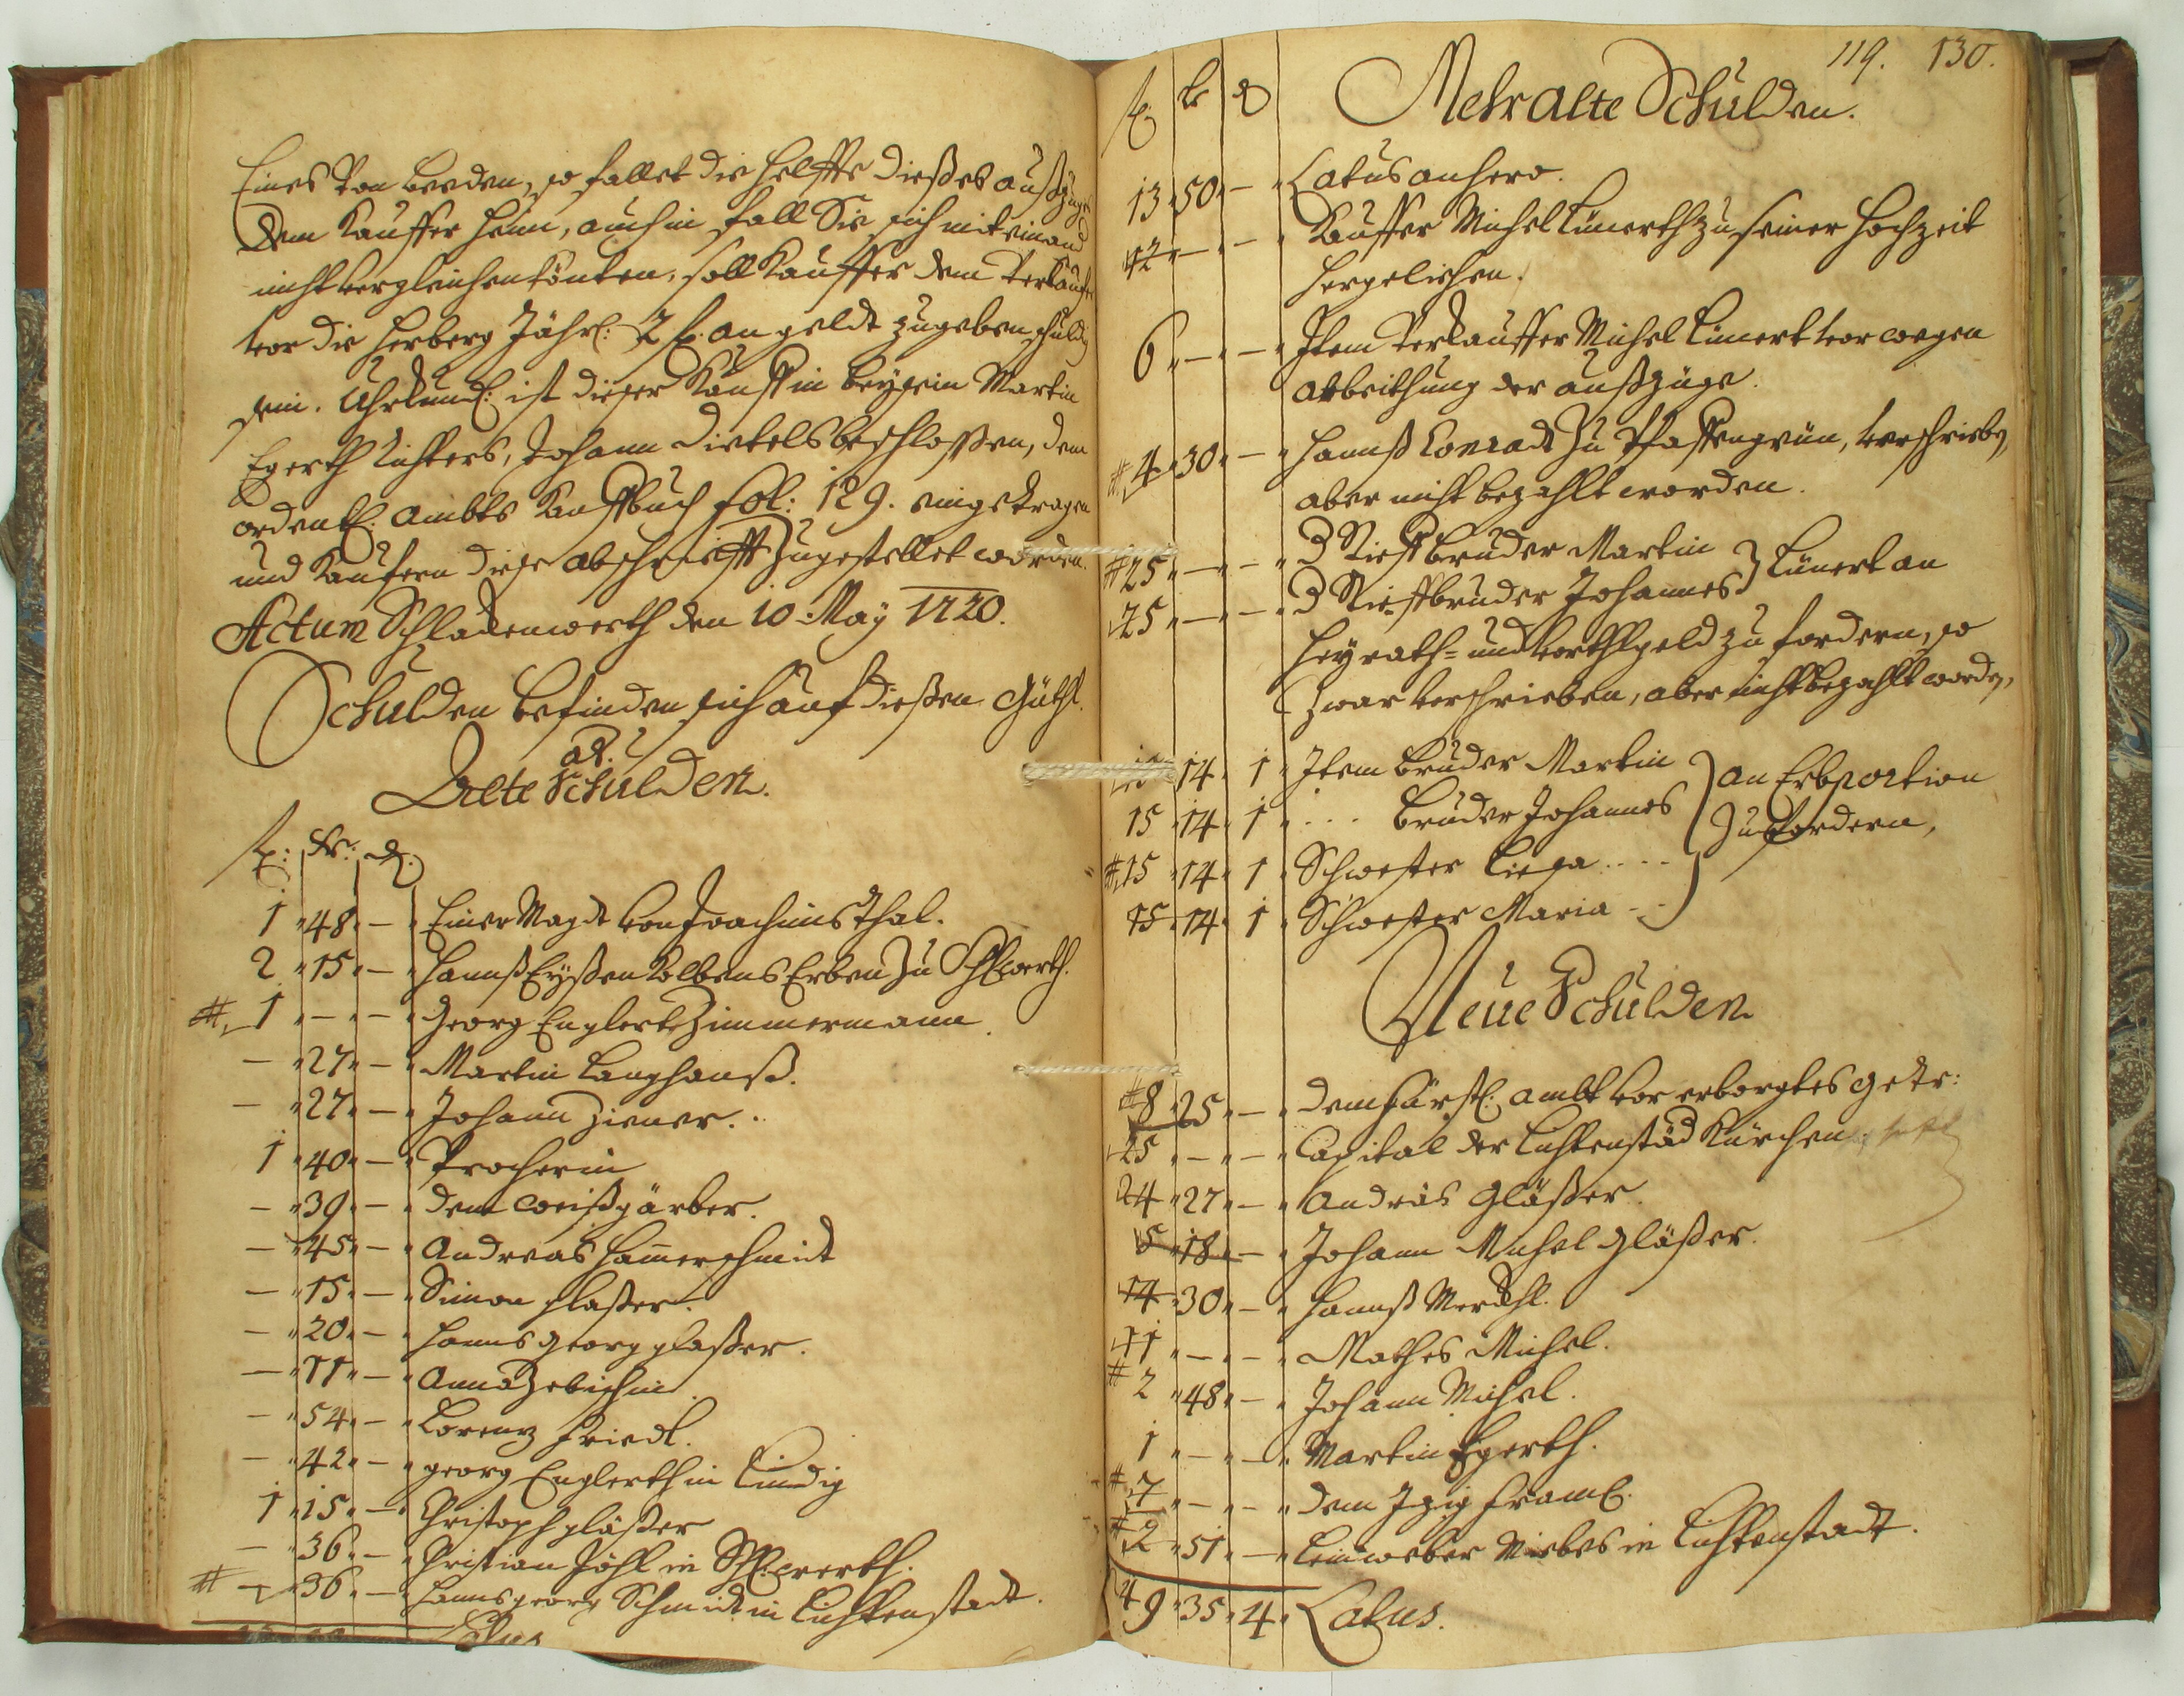 Eines von beeden, so fallet die Helffte dießes außzugs
dem Kauffer heim, auch in fall Sie sich mit einand
nicht vergleichen könten, soll Kauffer dem Verkauffer
vor die Herberg Jährl: 2 f. an geldt zugeben schuldig
sein. Uhrkundl: ist dieser Kauff in beysein Martin
Egerth Richters, Johann Dietels beschlossen, dem
ordentl. Ambts Kauffbuch fol: 129. eingetragen
und Kaufern diese abschriefft Zugestellet worden.
Actum Schlackenwerth den 10 May 1720.
Schulden befinden sich auf dießen Güthl.
als.
Alte Schulden.
f: Kr: d.
1 48 — Einer Magdt von Joachimsthal.
2 15 — Hannß Eyßenkolbens Erben Zu Schlwerth.
# 1 — — Georg Englert Zimmermann.
— 27 — Martin Langhanß.
— 27 — Johann Ziener.
1 40 — Procherin
— 39 — dem Weißgärber.
— 45 — Andreas Hamerschmidt
— 15 — Simon glaßer.
— 20 — Hanns Georg glaßer.
— 11 — Anna Zebischin.
— 54 — Lorenz Friedl.
— 42 — georg Englerth in Lindig
1 15 — Christoph gläßer
— 36 — Christian Pöhl in Schl:werth.
# — 36 — Hanns georg Schmidt in Lichtenstadt.
Latus
119. 130.
f. kr d Mehr Alte Schulden.
13 50 — Latus anhero.
12 — — Kauffer Michel Linerth zu seiner Hochzeit
hergeliehen.
6 — — Item Verkauffer Michel Linert vor wegen
abtreithung der außzüge.
# 4 30 — Hannß Conradt Zu Pfaffengrün, verschrieben,
aber nicht bezahlt worden.
# 25 — — d Stieffbruder Martin } Linert an
25 — — d Stieffbruder Johannes
Heyrath- und vorthlgeld zu fordern, so
zwar verschrieben, aber nicht bezahlt worden,
15 14 1 Item Bruder Martin } an Erbportion
15 14 1 ... Bruder Johannes Zufordern,
# 15 14 1 Schwester Liesa ....
15 14 1 Schwester Maria --
Neue Schulden
# 8 25 — dem Fürstl. Ambt vor erborgtes getr:
25 — — Capital der Lichtenstäd Kürchen
24 27 — Andreas Gläßer.
5 18 — Johann Michel Gläßer.
14 30 — Hannß Merckhl.
11 — — Mathes Michel.
# 2 48 — Johann Michel.
1 — — Martin Egerth.
# 7 — — dem Izig Främl.
# 2 51 — Leinweber Miebes in Lichtenstadt.
49 35 4 Latus.